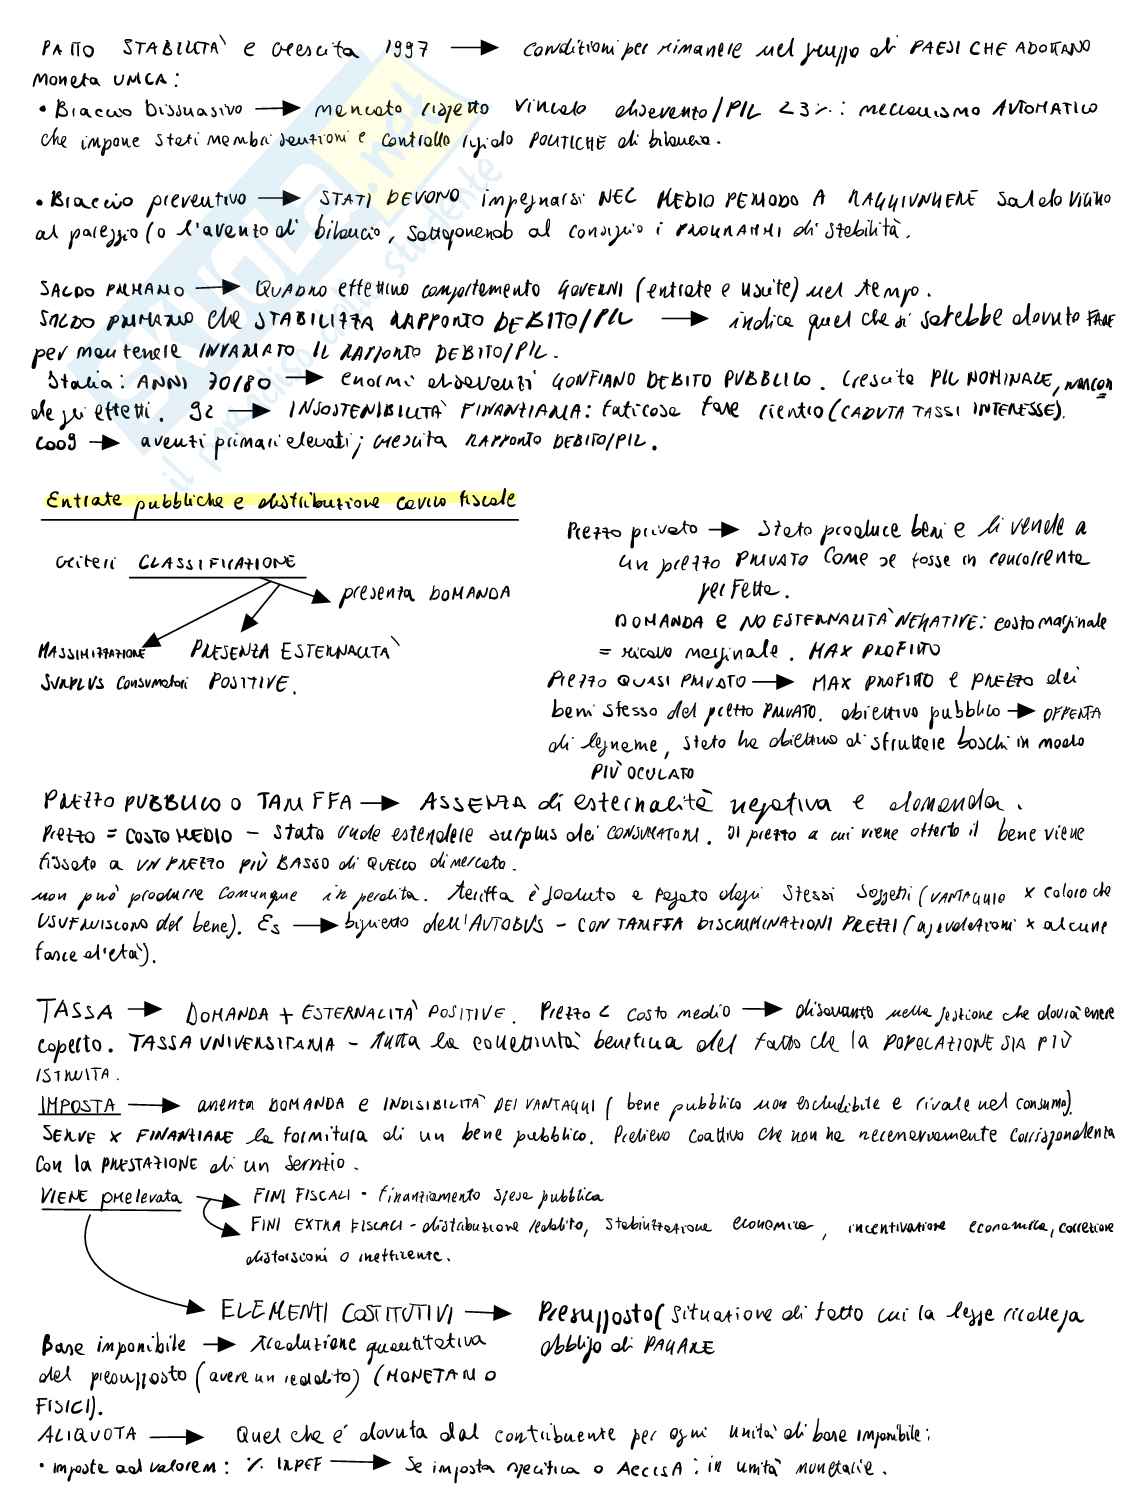 PATTO STABILITÀ e crescita 1997 → condizioni per rimanere nel gruppo di PAESI CHE ADOTTANO
Moneta UNICA:
• Braccio Dissuasivo → mancato rispetto vincolo disavanzo/PIL <3%: meccanismo AUTOMATICO
che impone stati membri sanzioni e controllo rigido POLITICHE di bilancio.
• Braccio preventivo → STATI DEVONO impegnarsi NEL MEDIO PERIODO A RAGGIUNGERE saldo vicino
al pareggio (o l'avanzo di bilancio, sottoponendo al consiglio i PROGRAMMI di stabilità.
SALDO PRIMARIO → QUADRO effettivo comportamento GOVERNI (entrate e uscite) nel tempo.
SALDO PRIMARIO che STABILIZZA RAPPORTO DEBITO/PIL → indica quel che si sarebbe dovuto FARE
per mantenere INVARIATO IL RAPPORTO DEBITO/PIL.
Italia: ANNI 70/80 → enormi disavanzi GONFIANO DEBITO PUBBLICO. Crescita PIL NOMINALE, nascon
de gli effetti. 92 → INSOSTENIBILITÀ FINANZIARIA: faticosa fase rientro (CADUTA TASSI INTERESSE).
2009 → avanzi primari elevati; crescita RAPPORTO DEBITO/PIL.
Entrate pubbliche e distribuzione carico fiscale
criteri CLASSIFICAZIONE
presenza DOMANDA
MASSIMIZZAZIONE PRESENZA ESTERNALITÀ
SURPLUS consumatori POSITIVE.
Prezzo privato → Stato produce beni e li vende a
un prezzo PRIVATO come se fosse in concorrenza
perfetta.
DOMANDA e NO ESTERNALITÀ NEGATIVE: costo marginale
= ricavo marginale. MAX PROFITTO
Prezzo QUASI PRIVATO → MAX PROFITTO e PREZZO dei
beni stesso del prezzo PRIVATO. obiettivo pubblico → OFFERTA
di legname, stato ha obiettivo di sfruttare boschi in modo
PIÙ OCULATO
PREZZO PUBBLICO O TARIFFA → ASSENZA di esternalità negativa e domanda.
Prezzo = COSTO MEDIO - stato vuole estendere surplus dei CONSUMATORI. Il prezzo a cui viene offerto il bene viene
fissato a UN PREZZO PIÙ BASSO di QUELLO di mercato.
non può produrre comunque in perdita. Tariffa è goduto e pagato dagli stessi soggetti (VANTAGGIO x coloro che
USUFRUISCONO del bene). Es → biglietto dell'AUTOBUS - CON TARIFFA DISCRIMINAZIONI PREZZI (agevolazioni x alcune
fasce d'età).
TASSA → DOMANDA + ESTERNALITÀ POSITIVE. Prezzo < costo medio → disavanzo nella gestione che dovrà essere
coperto. TASSA UNIVERSITARIA - tutta la collettività beneficia del fatto che la POPOLAZIONE SIA PIÙ
ISTRUITA.
IMPOSTA → assenza DOMANDA e INDISIBILITÀ DEI VANTAGGI ( bene pubblico non escludibile e rivale nel consumo).
SERVE x FINANZIARE la fornitura di un bene pubblico. Prelievo coattivo che non ha necessariamente corrispondenza
con la PRESTAZIONE di un servizio.
VIENE prelevata → FINI FISCALI - finanziamento spesa pubblica
FINI EXTRA FISCALI - distribuzione reddito, stabilizzazione economica, incentivazione economica, correzione
distorsioni o inefficienze.
ELEMENTI COSTITUTIVI → Presupposto( situazione di fatto cui la legge ricollega
obbligo di PAGARE
Base imponibile → traduzione quantitativa
del presupposto (avere un reddito) (MONETARI O
FISICI).
ALIQUOTA → Quel che é dovuta dal contribuente per ogni unità di base imponibile:
• imposte ad valorem: % IRPEF → Se imposta specifica o ACCISA: in unità monetarie.